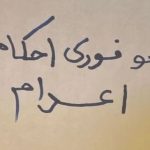 لغو فوری احکام
اعدام